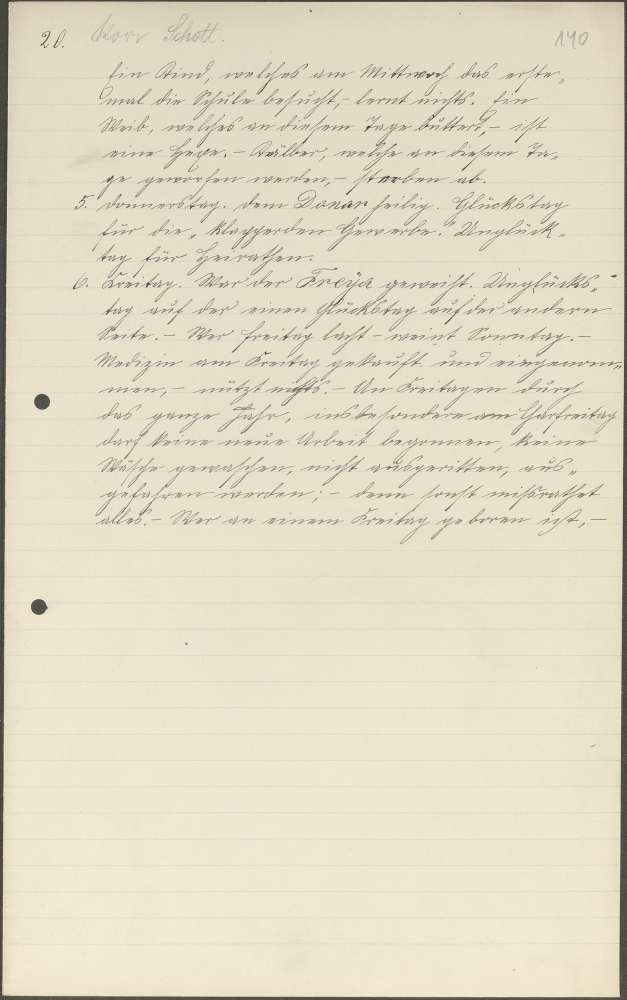 20. Korr Schott. 140
Ein Kind, welches am Mittwoch das erste„
mal die Schule besucht, - lernt nichts. Ein
Weib, welches an diesem Tage buttert, - ist
eine Hexe. - Kälber, welche an diesem Ta„
ge geworfen werden, - sterben ab.
5. Donnerstag. Dem Donar heilig. Glückstag
für die „klappernden Gewerbe." Unglücks„
tag für Heirathen.
6. Freitag. War der Freya geweiht. Unglücks„
tag auf der einen Glückstag auf der andern
Seite. - Wer Freitag lacht - weint Sonntag. -
Medizin am Freitag gekauft und eingenom„
men, - nützt nichts. - An Freitagen durch
das ganze Jahr, insbesondere am Charfreitag
darf keine neue Arbeit begonnen, keine
Wäsche gewaschen, nicht ausgeritten, aus„
gefahren werden; - denn sonst missrathet
alles. - Wer an einem Freitag geboren ist, -